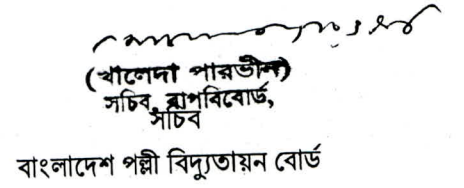 (খালেদা পারভীন)
সচিব, বাপবিবোর্ড,
সচিব
বাংলাদেশ পল্লী বিদ্যুতায়ন বোর্ড